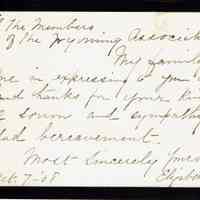 The Members
of the Wyoming Associat
My family
me in expressing to you
and thanks for your kin
sorrow and sympath
sad bereavement.
Most Sincerely Yours
7-08